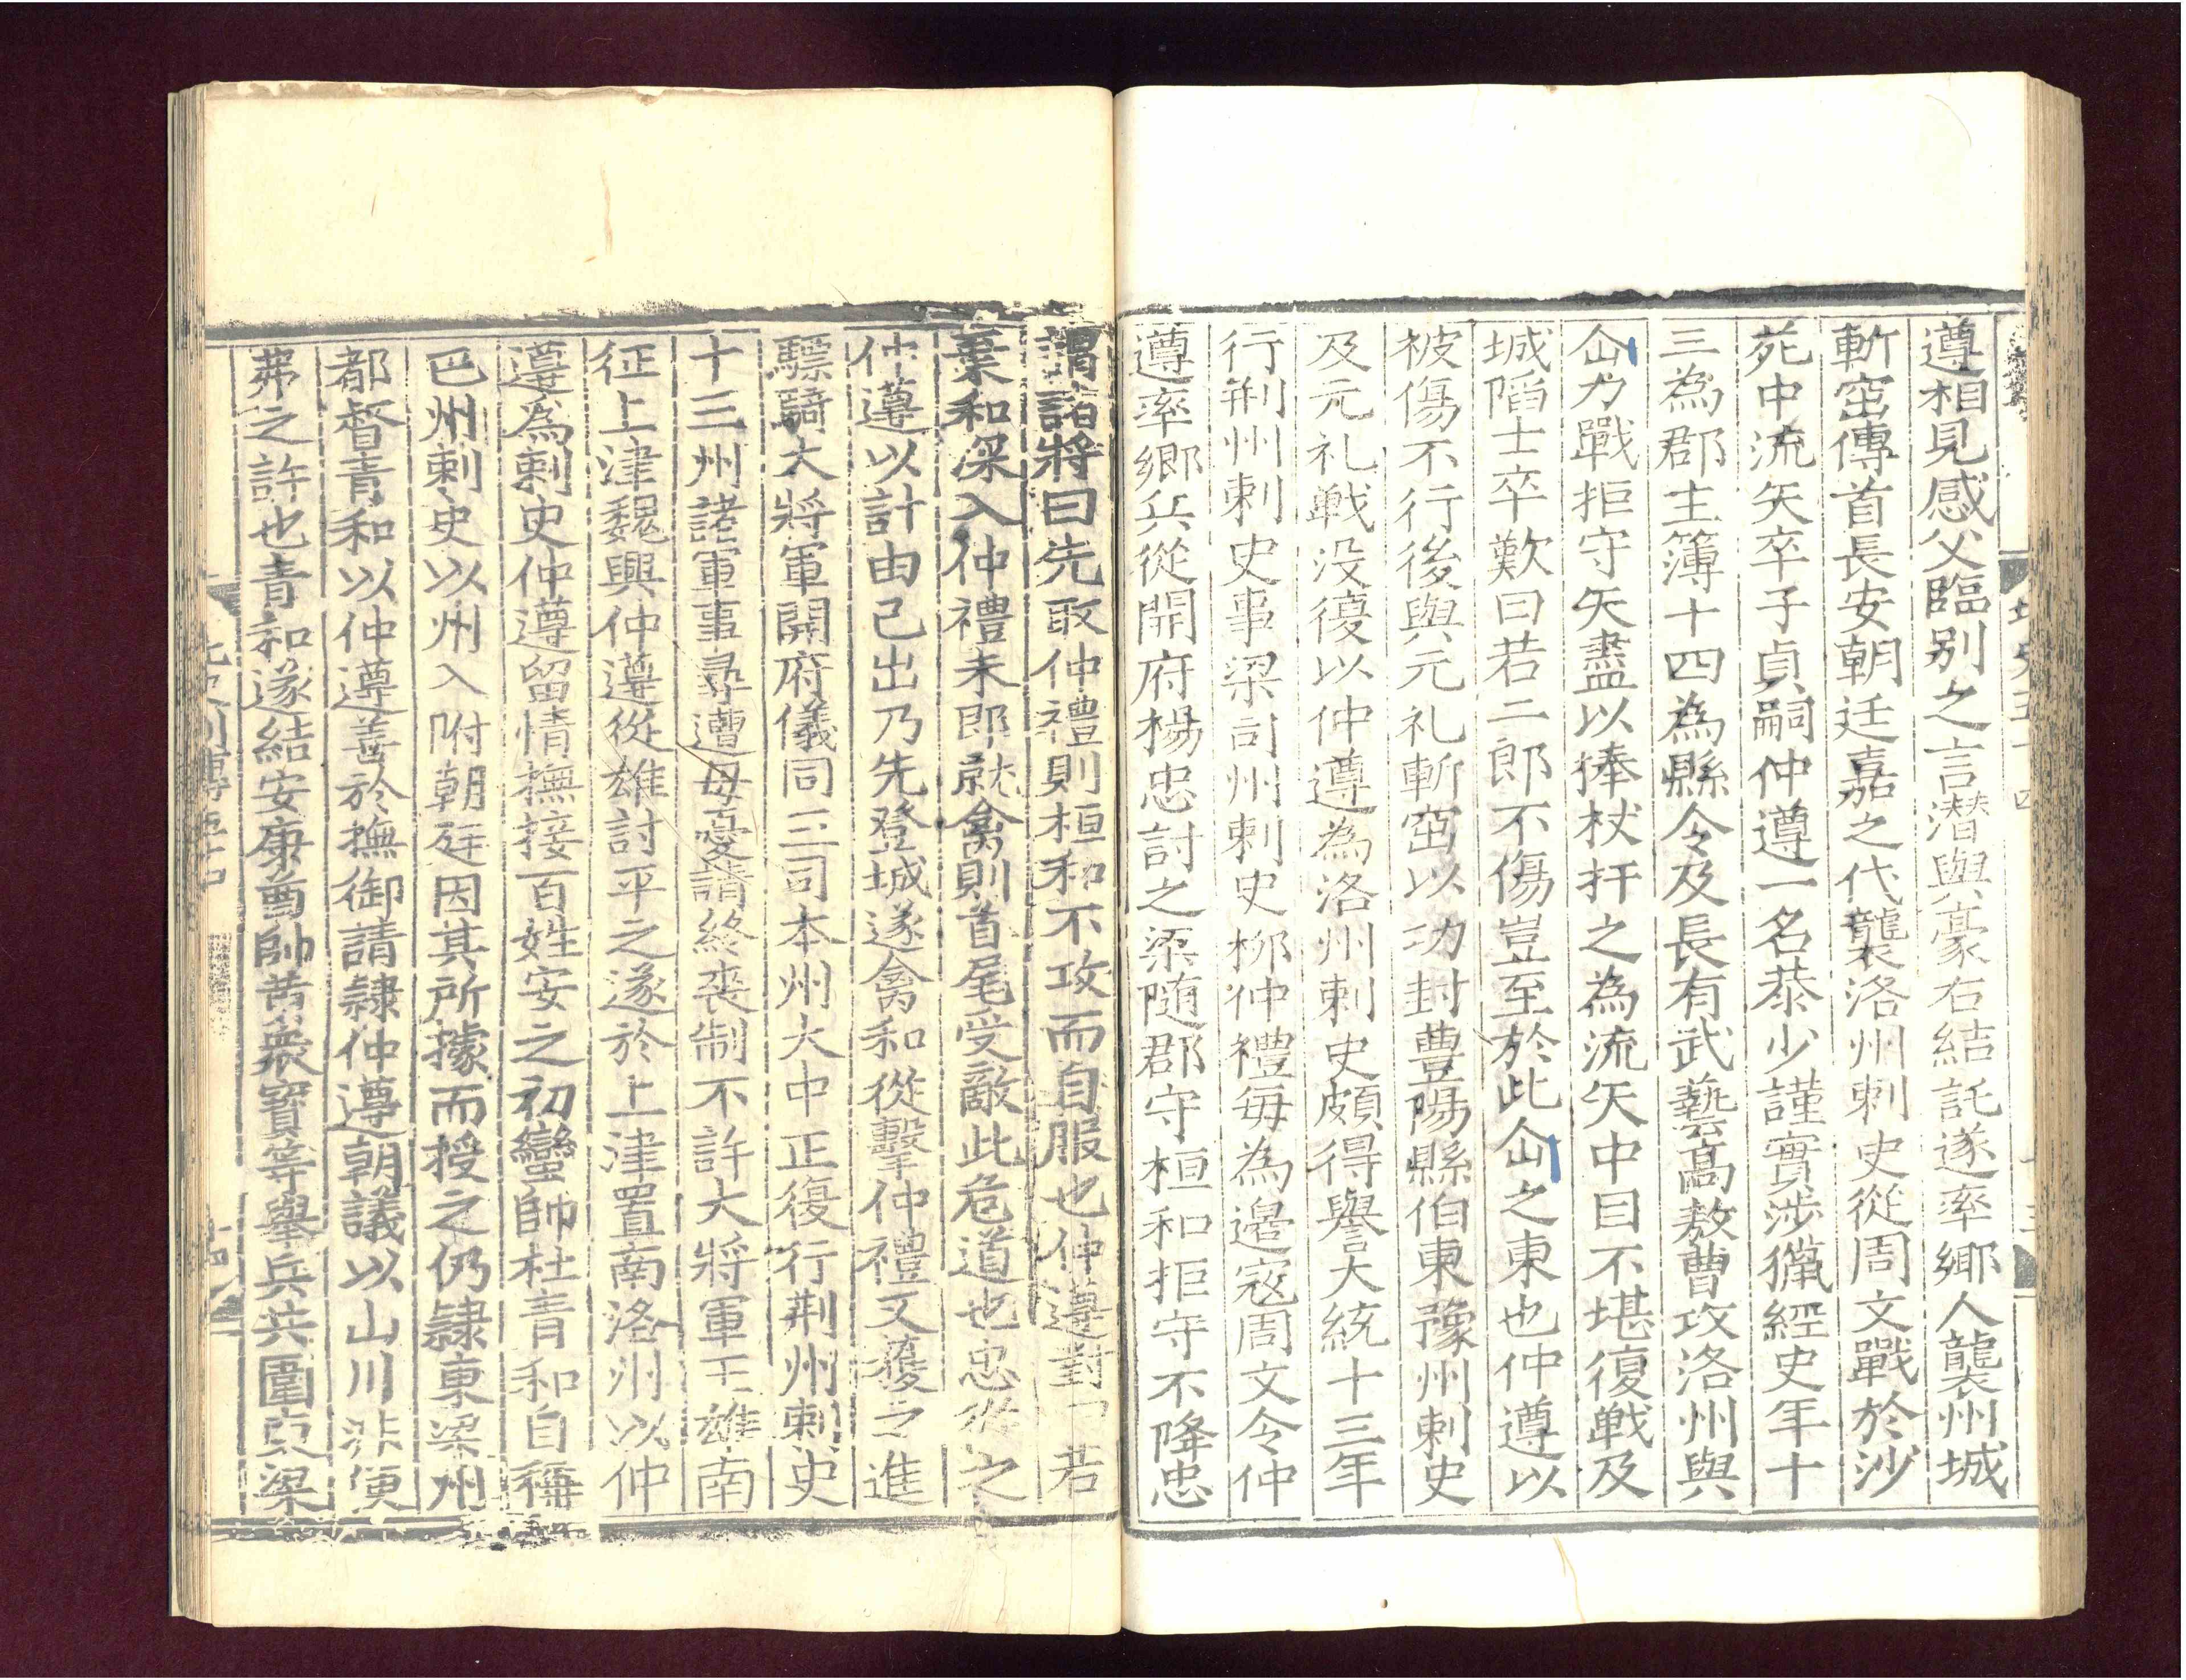 遵相見感父臨別之言潜與豪右結託遂率鄉人襲州城
斬窋傳首長安朝廷嘉之代襲洛州刺史從周文戰於沙
苑中流矢卒子貞嗣仲遵一名恭少謹實涉獵經史年十
三為郡主簿十四為縣令及長有武藝高敖曹攻洛州與
仚力戰拒守矢盡以捧杖扞之為流矢中目不堪復戦及
城陷士卒歎曰若二郎不傷豈至於此仚之東也仲遵以
被傷不行後與元礼斬窋以功封豊陽縣伯東豫州刺史
及元礼戦没復以仲遵為洛州刺史頗得譽大統十三年
行荆州刺史事梁司州刺史柳仲禮每為邊寇周文令仲
遵率鄉兵從開府楊忠討之梁随郡守桓和拒守不降忠
謂諸將曰先取仲禮則桓和不攻而自服也仲遵對曰若
棄和深入仲禮未即就禽則首尾受敵此危道也忠從之
仲遵以計由己出乃先登城遂禽和從擊仲禮又獲之進
驃騎大將軍開府儀同三司本州大中正復行荆州刺史
十三州諸軍事尋遭母憂請終喪制不許大將軍王雄南
征上津魏興仲遵從雄討平之遂於上津置南洛州以仲
遵為刺史仲遵留情撫接百姓安之初蠻帥杜青和自稱
巴州刺史以州入附朝廷因其所據而授之仍隸東梁州
都督青和以仲遵善於撫御請隸仲遵朝議以山川非便
弗之許也青和遂結安康酋帥黄衆寳等舉兵共圍東梁